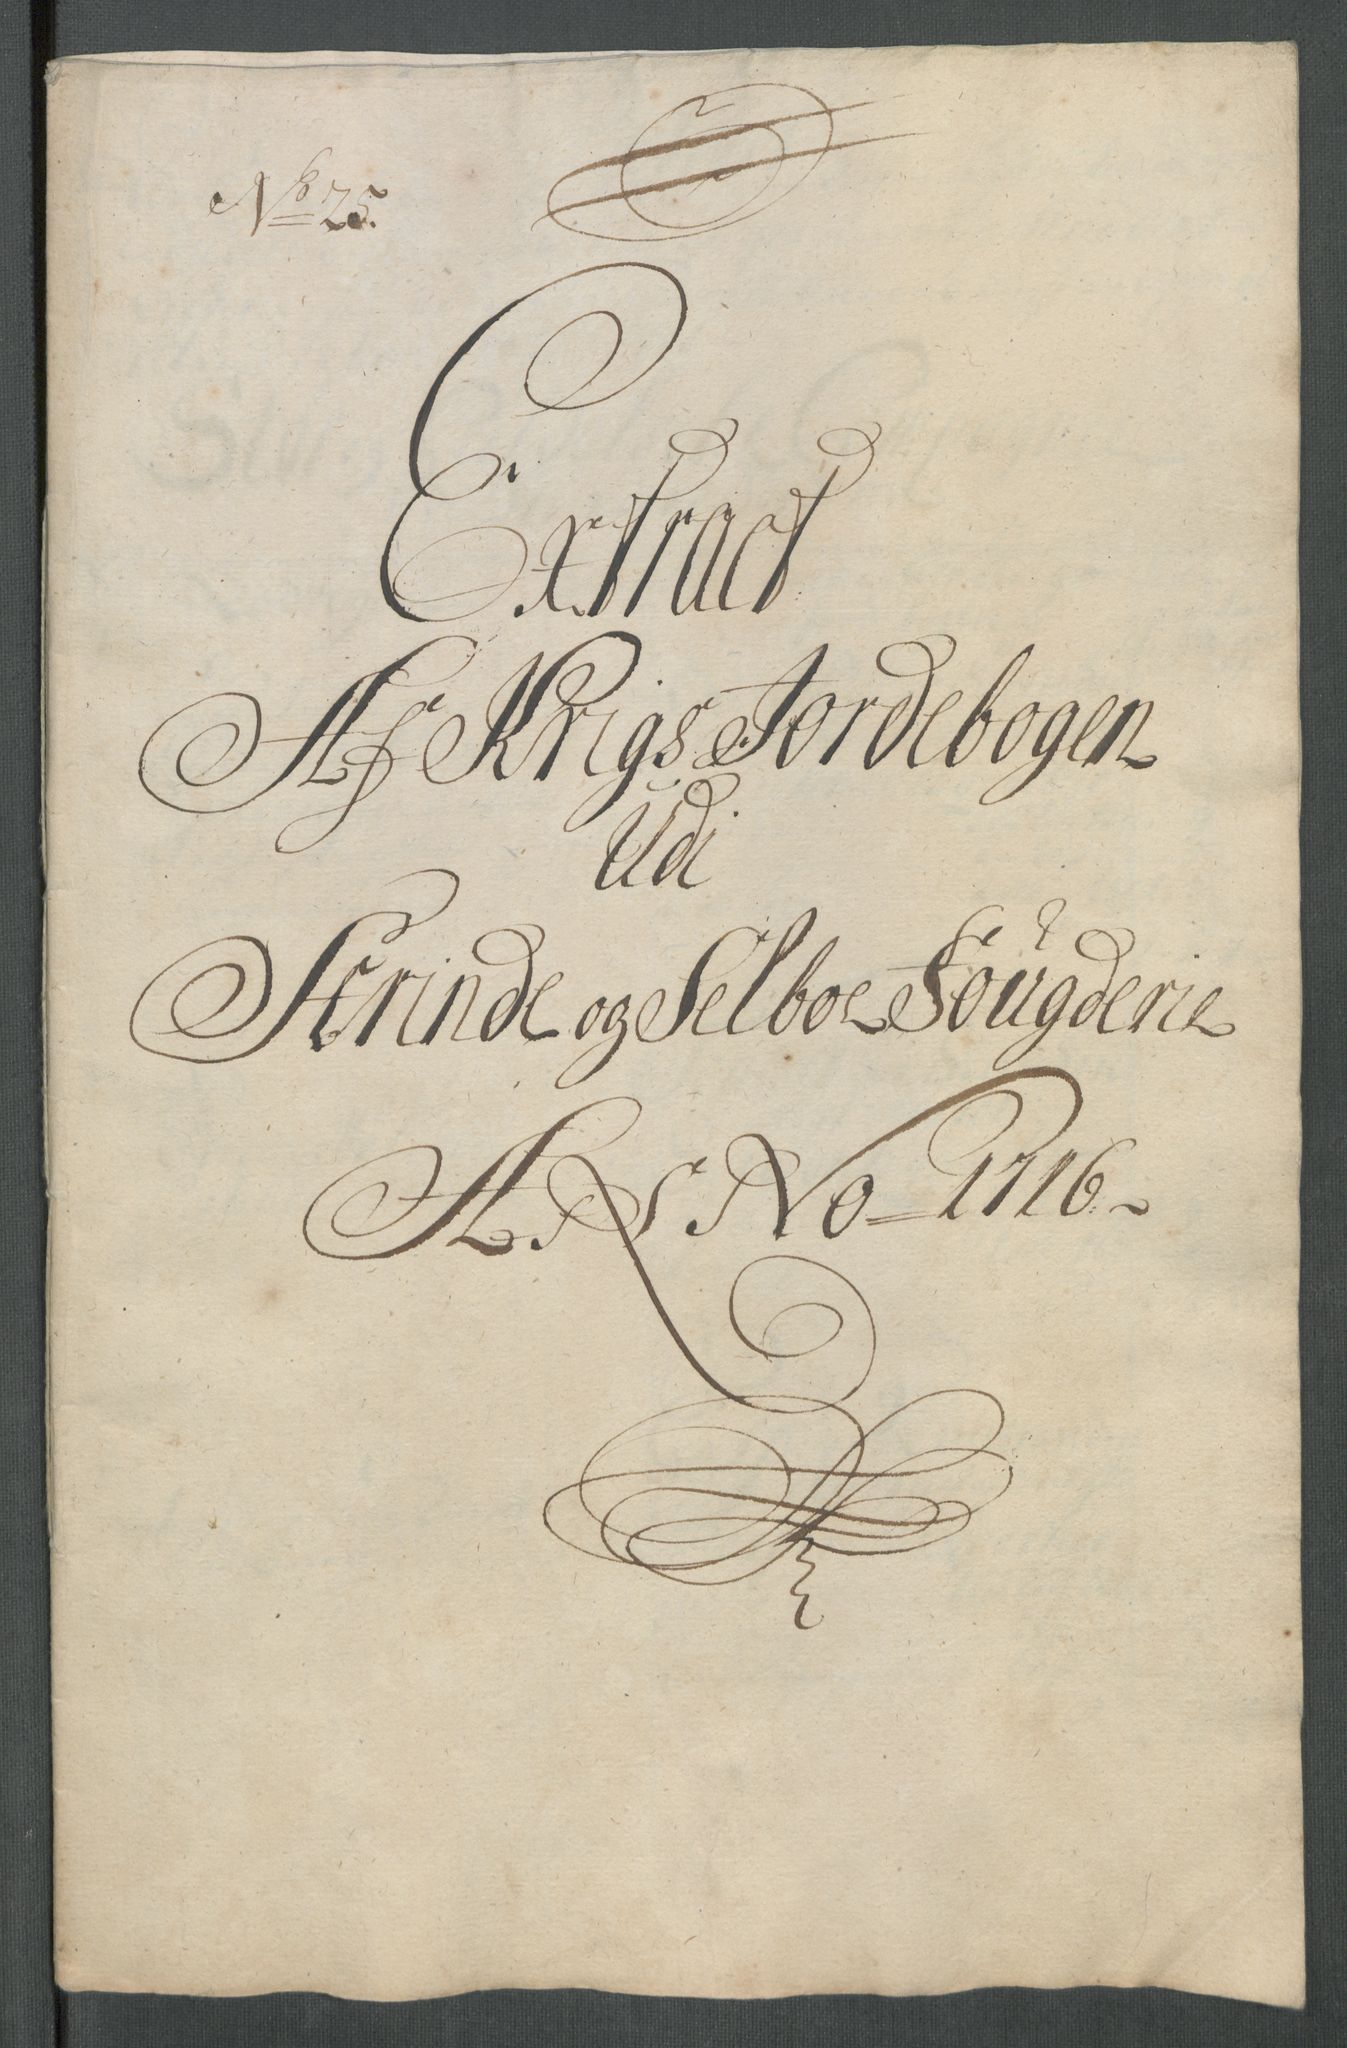 No 25.
Extract
Af Krigs Jordebogen
Udi
Strinde og Selboe Fougderie
A No 1716.